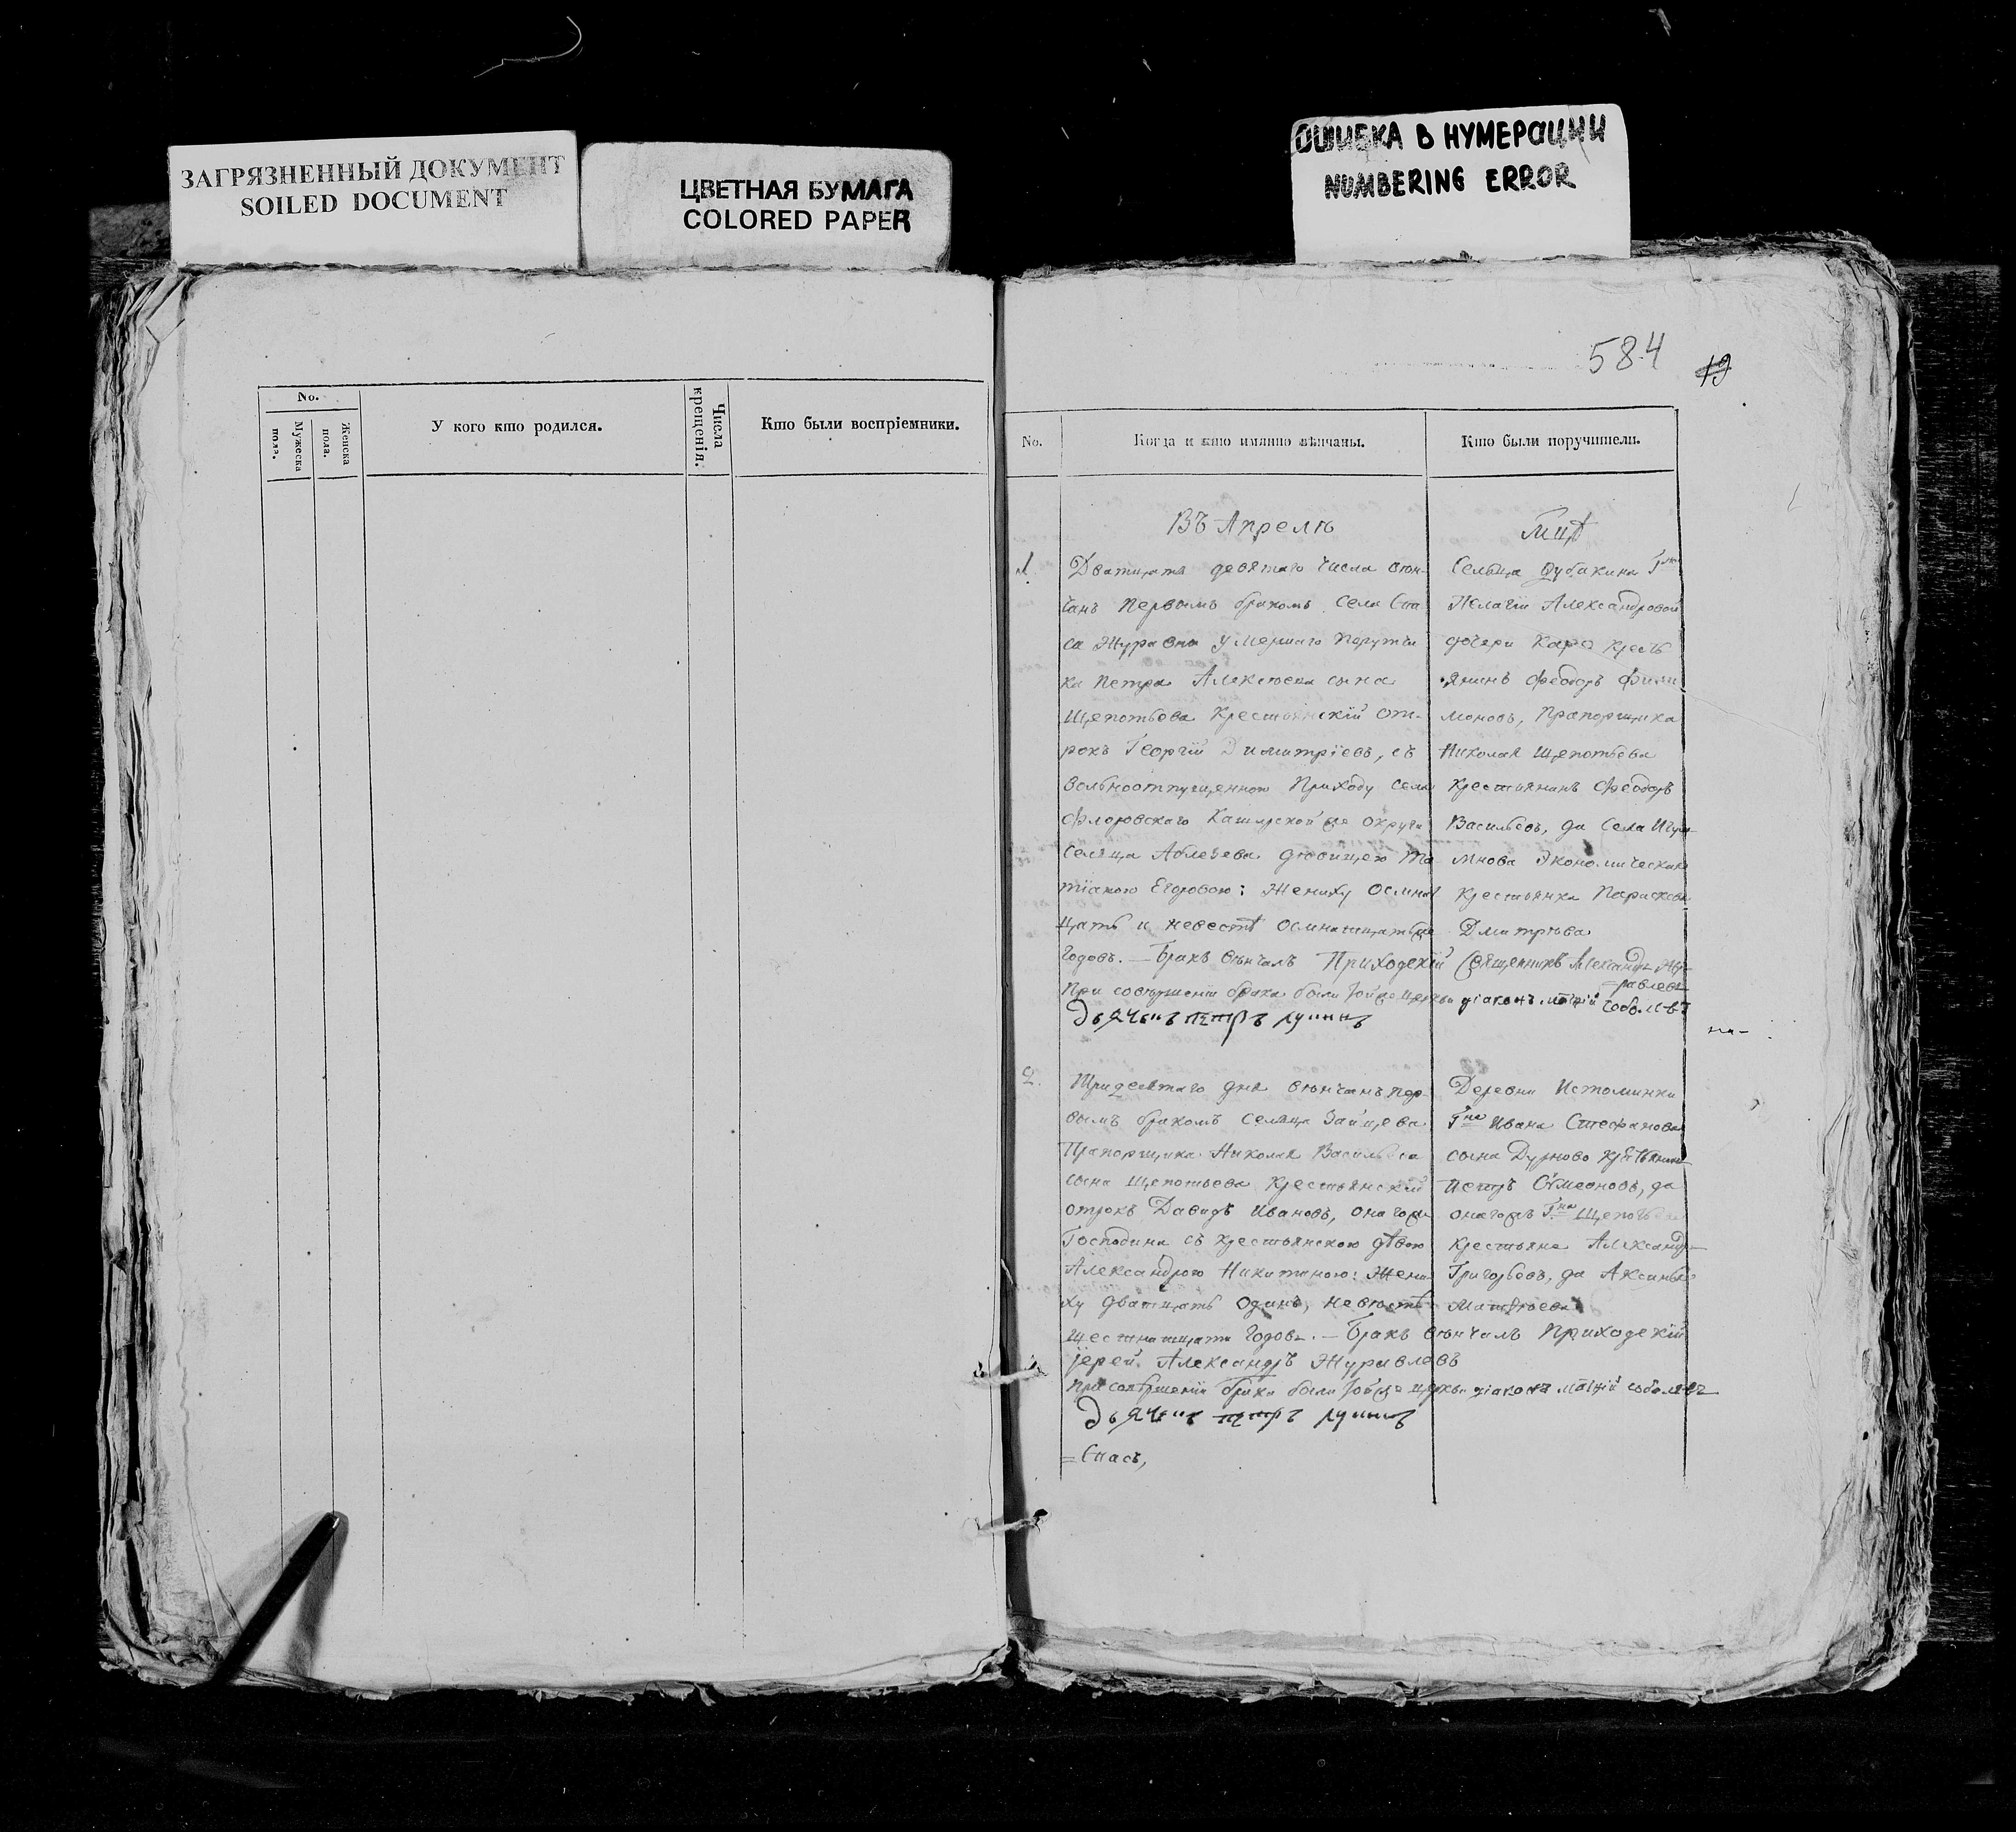 ЗАГРЯЗНЕННЫЙ ДОКУМЕНТ
SOILED DOCUMENT
ЦВЕТНАЯ БУМАГА
COLORED PAPER
ОШИБКА В НУМЕРАЦИИ
NUMBERING ERROR
584
19
No.
Мужеска пола.
Женска пола.
У кого кто родился.
Числа крещенія.
Кто были воспріемники.
No.
Когда и кто имянно вѣнчаны.
Кто были поручители.
Въ Апрелѣ
1.
Дватцать девятаго числа вѣн-
чанъ первымъ бракомъ села Спа
са Журавна умершаго Поручи
ка Петра Алексѣева сына
Щепотьева крестьянскій от-
рокъ Георгій Димитріевъ, съ
вольноотпущенною приходу села
Флоровскаго Каширской же округи
сельца Аблезева девицею Та
тіаною Егоровою; жениху осмнат
цать и невестѣ осмнатцать же
годовъ. — Бракъ вѣнчалъ Приходскій Священникъ Александръ Жу-
равлевъ
При совершеніи брака были той же церкви діаконъ
Дьячекъ петръ лунинъ
Сельца
Пелагіи Александровой
дочери крестъ
янинъ Феодоръ Фили
моновъ, Прапорщика
Николая Щепотьева
крестьянинъ Феодоръ
Васильевъ, да села Игум-
мнова Экономическая
крестьянка Параскева
Дмитрѣва
2.
Тридесятаго дня вѣнчанъ пер-
вымъ бракомъ сельца Зайцева
Прапорщика Николая Васильева
сына Щепотьева крестьянскій
отрокъ Давидъ Ивановъ, онаго же
Господина съ крестьянскою дѣвою
Александрою Никитиною: жени
ху дватцать одинъ, невѣстѣ
шестнатцать годовъ. — Бракъ вѣнчалъ Приходскій
іерей Александръ Журавлевъ
При совершеніи брака были той же церкви діаконъ
Дьячекъ петръ лунинъ
= Спасъ,
Деревни Истоминки
Гна Ивана Стефанова
сына Дурново
Петръ Сѵмеоновъ, да
онагожъ Гна Щепотьева
крестьяне Александръ
Григорьевъ, да Аксинья
Матфѣева